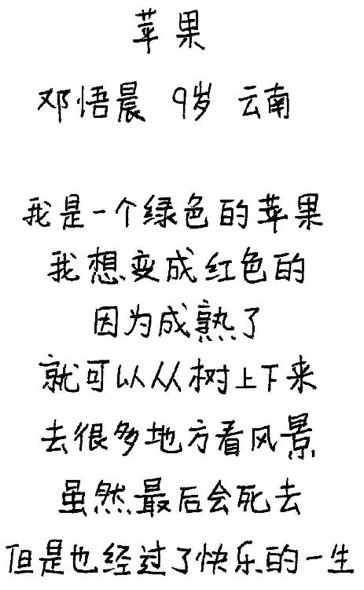 苹果
邓悟晨 9岁 云南
我是一个绿色的苹果
我想变成红色的
因为成熟了
就可以从树上下来
去很多地方看风景
虽然最后会死去
但是也经过了快乐的一生